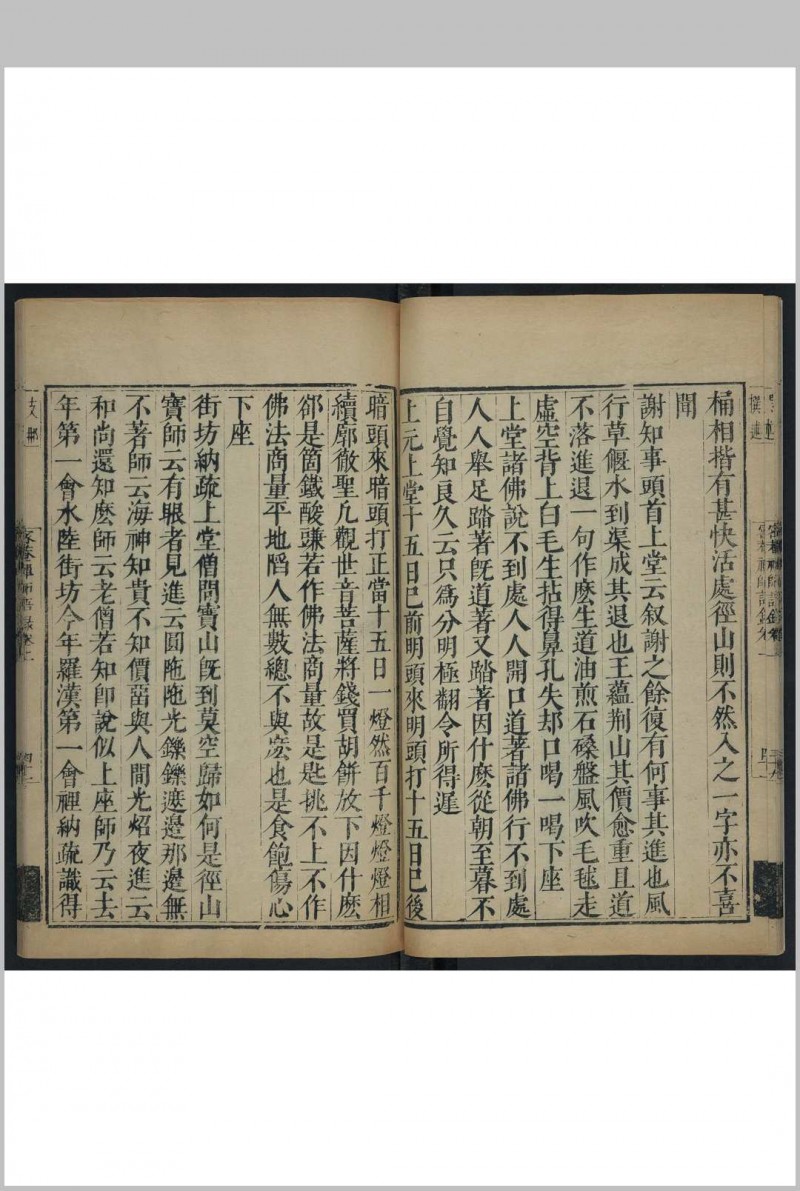 桶相揩有甚快活處徑山則不然入之一字亦不喜
聞
謝知事頭首上堂云叙謝之餘復有何事其進也風
行草偃水到渠成其退也玉蘊荆山其價愈重且道
不落進退一句作麽生道油煎石磉盤風吹毛毬走
虛空背上白毛生拈得鼻孔失却口喝一喝下座
上堂諸佛說不到處人人開口道著諸佛行不到處
人人舉足踏著旣道著又踏著因什麽從朝至暮不
自覺知良久云只爲分明極翻令所得遲
上元上堂十五日已前明頭來明頭打十五日已後
暗頭來暗頭打正當十五日一燈然百千燈燈燈相
續廓徹聖凡觀世音菩薩將錢買胡餅放下因什麽
郤是箇鐵酸豏若作佛法商量故是匙挑不上不作
佛法商量平地陷人無數總不與麽也是食飽傷心
下座
街坊納疏上堂僧問寶山旣到莫空歸如何是徑山
寶師云有眼者見進云圓陁陁光鑠鑠這邊那邊無
不著師云海神知貴不知價畱與人間光炤夜進云
和尚還知麽師云老僧若知卽說似上座師乃云去
年第一會水陸街坊今年羅漢第一會裡納疏識得
支那